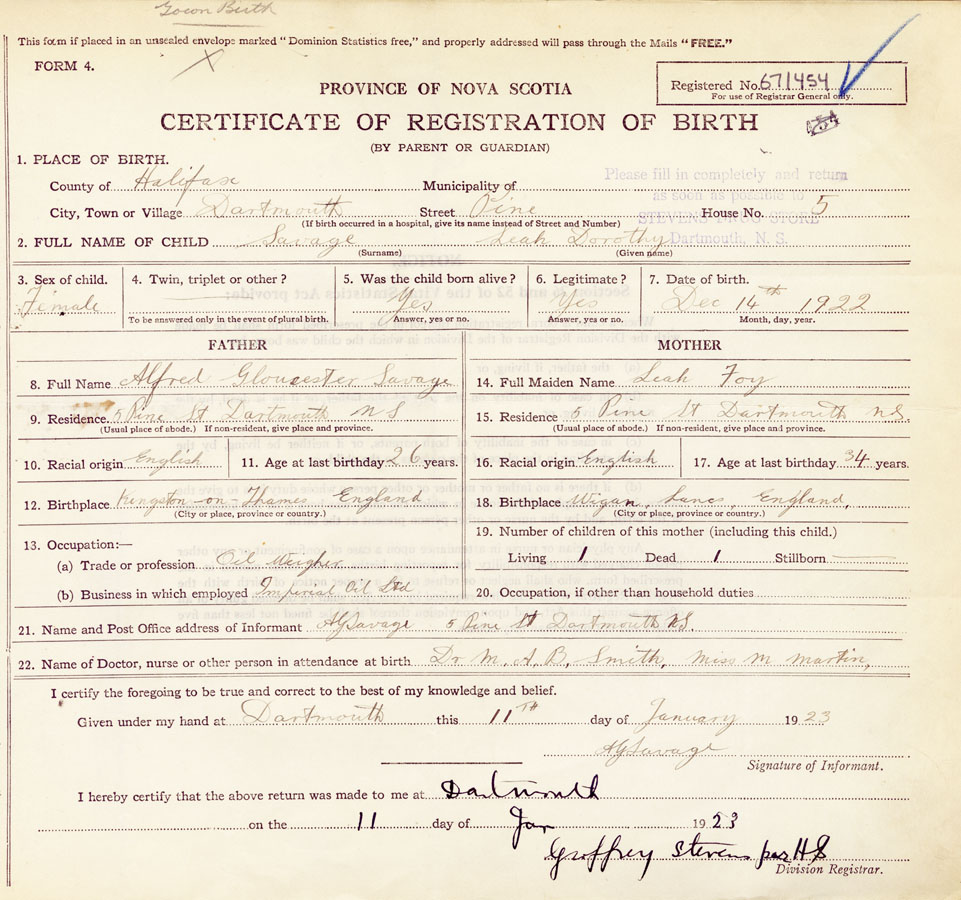 Town Birth
This form if placed in an unsealed envelope marked "Dominion Statistics free," and properly addressed will pass through the Mails "FREE."
FORM 4.
X
Registered No. 671454
For use of Registrar General only.
754
PROVINCE OF NOVA SCOTIA
CERTIFICATE OF REGISTRATION OF BIRTH
(BY PARENT OR GUARDIAN)
Please fill in completely and return
as soon as possible to
STEVENS DRUG STORE
Dartmouth, N. S.
1. PLACE OF BIRTH.
County of Halifax Municipality of
City, Town or Village Dartmouth Street Pine House No. 5
(If birth occurred in a hospital, give its name instead of Street and Number)
2. FULL NAME OF CHILD Savage Leah Dorothy
(Surname) (Given name)
3. Sex of child. 4. Twin, triplet or other? 5. Was the child born alive? 6. Legitimate? 7. Date of birth.
Female Yes Yes Dec 14th 1922
To be answered only in the event of plural birth. Answer, yes or no. Answer, yes or no. Month, day, year.
FATHER
8. Full Name Alfred Gloucester Savage
9. Residence. 5 Pine St Dartmouth NS
(Usual place of abode.) If non-resident, give place and province.
10. Racial origin English 11. Age at last birthday 26 years.
12. Birthplace Kingston-on-Thames England
(City or place, province or country.)
13. Occupation:—
(a) Trade or profession Oil Weigher
(b) Business in which employed Imperial Oil Ltd
MOTHER
14. Full Maiden Name Leah Foy
15. Residence 5 Pine St Dartmouth N.S.
(Usual place of abode.) If non-resident, give place and province.
16. Racial origin English 17. Age at last birthday 34 years.
18. Birthplace Wigan, Lancs, England,
(City or place, province or country.)
19. Number of children of this mother (including this child.)
Living 1 Dead 1 Stillborn
20. Occupation, if other than household duties
21. Name and Post Office address of Informant AGSavage 5 Pine St Dartmouth N.S.
22. Name of Doctor, nurse or other person in attendance at birth Dr M. A. B. Smith, Miss M Martin,
I certify the foregoing to be true and correct to the best of my knowledge and belief.
Given under my hand at Dartmouth this 11TH day of January 1923
AGSavage
Signature of Informant.
I hereby certify that the above return was made to me at Dartmouth
on the 11 day of Jan 1923
Geoffrey Stevens per HS
Division Registrar.